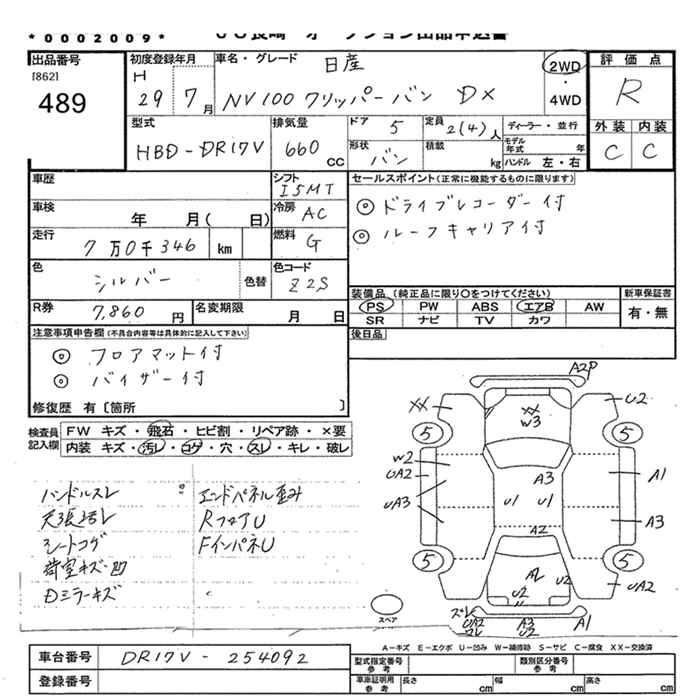 *0002009*
出品番号
[862]
489
初度登録年月
H
29 7月
車名・グレード
日産
NV100 クリッパーバン DX
2WD
・
4WD
評価点
R
型式
HBD-DR17V
排気量
660 CC
ドア 5
定員 2(4)人
ディーラー・並行
形状 バン
積載 kg
モデル年式 年
ハンドル 左・右
外装 内装
C C
車歴
シフト I5MT
車検 年 月( 日)
冷房 AC
走行 7万0千346 km
燃料 G
色 シルバー 色替
色コード Z2S
R券 7,860円
名変期限 月 日
セールスポイント(正常に機能するものに限ります)
◎ ドライブレコーダー付
◎ ルーフキャリア付
装備品(純正品に限り○をつけてください)
新車保証書
PS PW ABS エアB AW
有・無
SR ナビ TV カワ
後日品
注意事項申告欄(不具合内容等は具体的に記入して下さい)
◎ フロアマット付
◎ バイザー付
修復歴 有〔箇所 〕
検査員
記入欄
FW キズ・飛石・ヒビ割・リペア跡・×要
内装 キズ・汚レ・コゲ・穴・スレ・キレ・破レ
ハンドルスレ
天張汚レ
シートコゲ
荷室キズ・凹
Dミラーキズ
エンドパネル歪み
RフロアU
FインパネU
A2P
XX
U2
XX
W3
5
5
W2
UA2
UA3
A3
U1 U1
A1
A3
A2
5
5
A2
U2
U2
UA2
ズレ
UA2
コレ
A3
U2
A1
スペア
A-キズ E-エクボ U-凹み W-補修跡 S-サビ C-腐食 XX-交換済
車台番号
DR17V-254092
登録番号
型式指定番号
参考
類別区分番号
参考
車庫証明用
参考
長さ cm
幅 cm
高さ cm